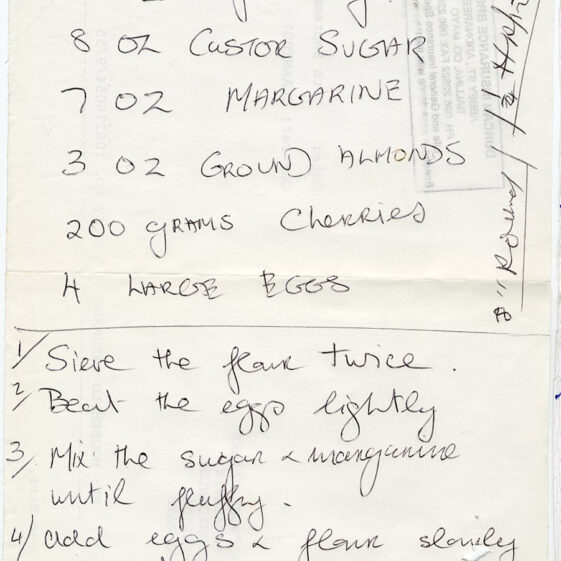 8 OZ CUSTOR SUGAR
7 OZ MARGARINE
3 OZ GROUND ALMONDS
200 GRAMS Cherries
4 LARGE EGGS
1/ Sieve the flour twice.
2/ Beat the eggs lightly
3/ Mix the sugar & margarine
until fluffy.
4/ add eggs & flour slowly
8" Round